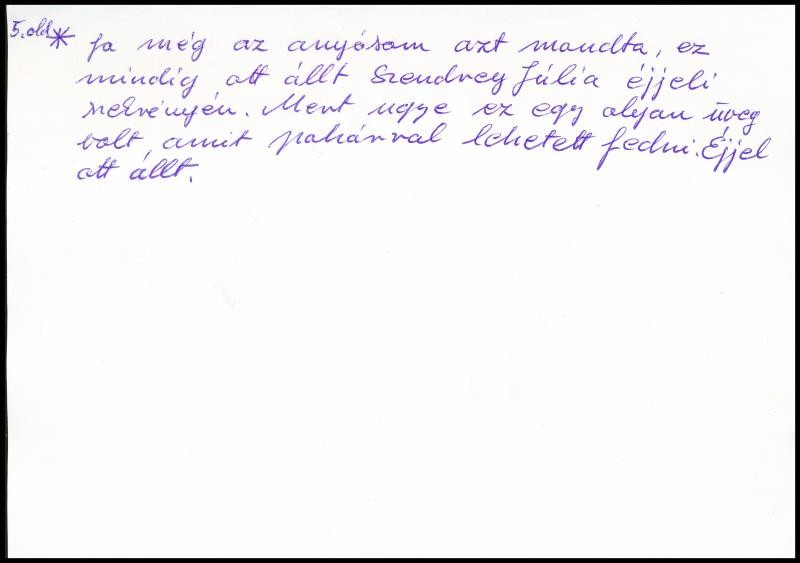 5. old. * Ja még az anyósom azt mondta, ez
mindig ott állt Szendrey Júlia éjjeli
szekrényén. Mert ugye ez egy olyan üveg
volt, amit pohárral lehetett fedni. Éjjel
ott állt.